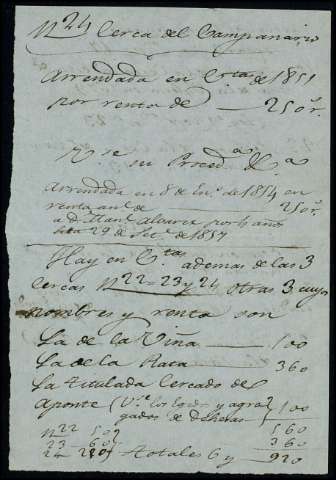 N 24 Cerca del Campanario
Arrendada en Ctas de 1851
por renta de — 250 r.
Vse su Proced.a &.a
Arrendada en 8 de En.o de 1854 en
renta an.l de — 250 r.
a D. Man.l Alvarez por 4 años
hta 29 de Set.e de 1857
Hay en Ctas ademas de las 3
cercas N 22 - 23 y 24 otras 3 cuyos
nombres y renta son
La de la Viña — 100
La de la Rata — 360
La titulada Cercado de
Aponte (V.e y agre
gados de Deheras) 100
N 22 50 560
23 60 360
24 totales 6 y — 920